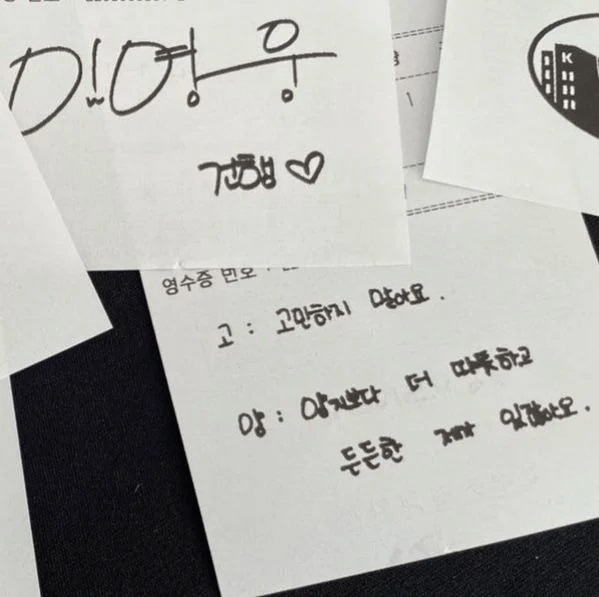 민영웅
건행♡
K
영수증 번호 :
고 : 고민하지 말아요.
양 : 양지보다 더 따뜻하고
든든한 제가 있잖아요.